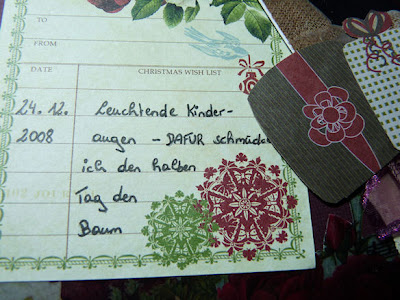 TO
FROM
DATE CHRISTMAS WISH LIST
24.12. Leuchtende Kinder-
2008 augen – DAFÜR schmücke
ich den halben
Tag den
Baum